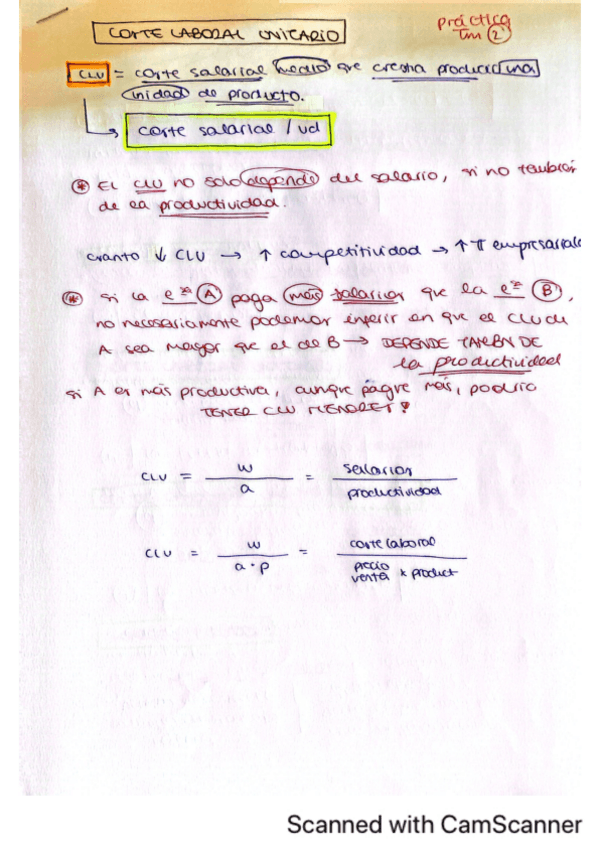 COSTE LABORAL UNITARIO
práctica
Tm 2
CLU = coste salarial medio que cuesta producir una
unidad de producto.
coste salarial / ud
* EL CLU no solo depende del salario, si no también
de la productividad.
cuanto ↓ CLU → ↑ competitividad → ↑ π empresariale
* si la eª A paga más salarios que la eª B,
no necesariamente podemos inferir en que el CLU de
A sea mayor que el de B → DEPENDE TAMBN DE
la productividad
si A es más productiva, aunque pague más, podría
TENER CLU MENORES!
CLU = w / a = salarios / productividad
CLU = w / a · p = coste laboral / precio venta x product
Scanned with CamScanner